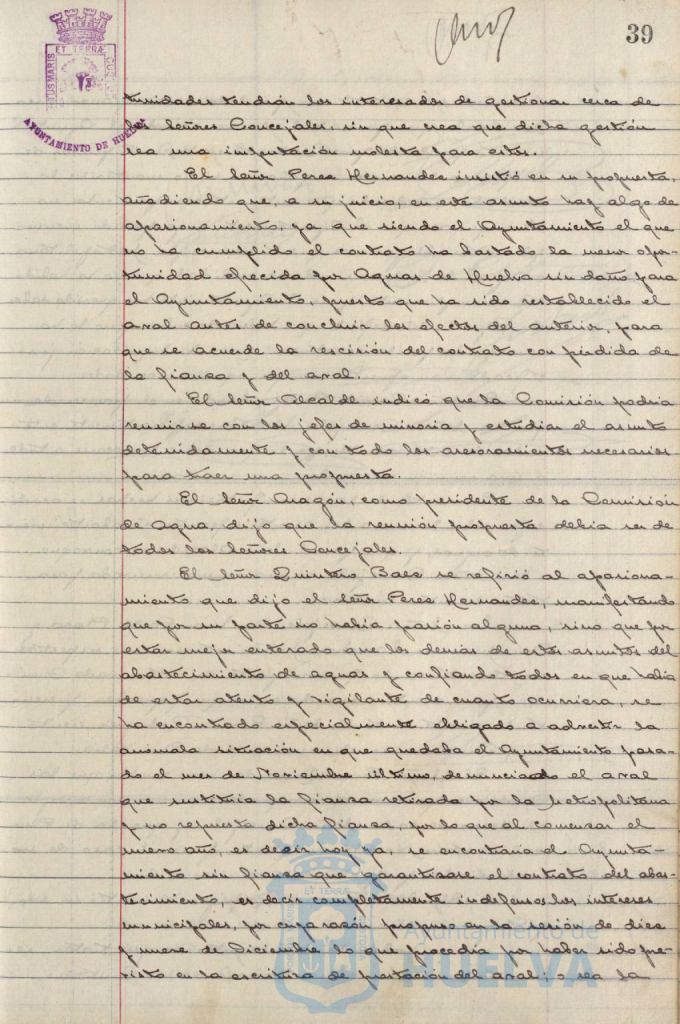 39
ET TERRÆ
AYUNTAMIENTO DE HUELVA
tunidades tendrán los interesados de gestionar cerca de
los Señores Concejales, sin que crea que dicha gestión
sea una imputación molesta para estos.
El Señor Perez Hernandez insistió en su propuesta,
añadiendo que, a su juicio, en este asunto hay algo de
apasionamiento, ya que siendo el Ayuntamiento el que
no ha cumplido el contrato ha bastado la menor opor-
tunidad ofrecida por Aguas de Huelva sin daño para
el Ayuntamiento, puesto que ha sido restablecido el
aval antes de concluir los efectos del anterior, para
que se acuerde la rescisión del contrato con pérdida de
la fianza y del aval.
El Señor Alcalde indicó que la Comisión podria
reunirse con los jefes de minoria y estudiar el asunto
detenidamente y con todo los asesoramientos necesarios
para traer una propuesta.
El Señor Aragón, como presidente de la Comisión
de Agua, dijo que la reunión propuesta debia ser de
todos los Señores Concejales.
El Señor Quintero Baez se refirió al apasiona-
miento que dijo el Señor Perez Hernandez, manifestando
que por su parte no habia pasión alguna, sino que por
estar mejor enterado que los demás de estos asuntos del
abastecimiento de aguas y confiando todos en que habia
de estar atento y vigilante de cuanto ocurriera, se
ha encontrado especialmente obligado a advertir la
anómala situación en que quedaba el Ayuntamiento pasa-
do el mes de Noviembre último, denunciado el aval
que sustituia la fianza retirada por la Metropolitana
y no repuesta dicha fianza, por lo que al comenzar el
nuevo año, es decir hoy ya, se encontraria el Ayunta-
miento sin fianza que garantizase el contrato del abas-
tecimiento, es decir completamente indefensos los intereses
municipales, por cuya razón propuso en la sesión de diez
y nueve de Diciembre lo que procedia por haber sido pre-
visto en la escritura de prestación del aval; o sea la
Ayuntamiento de
HUELVA